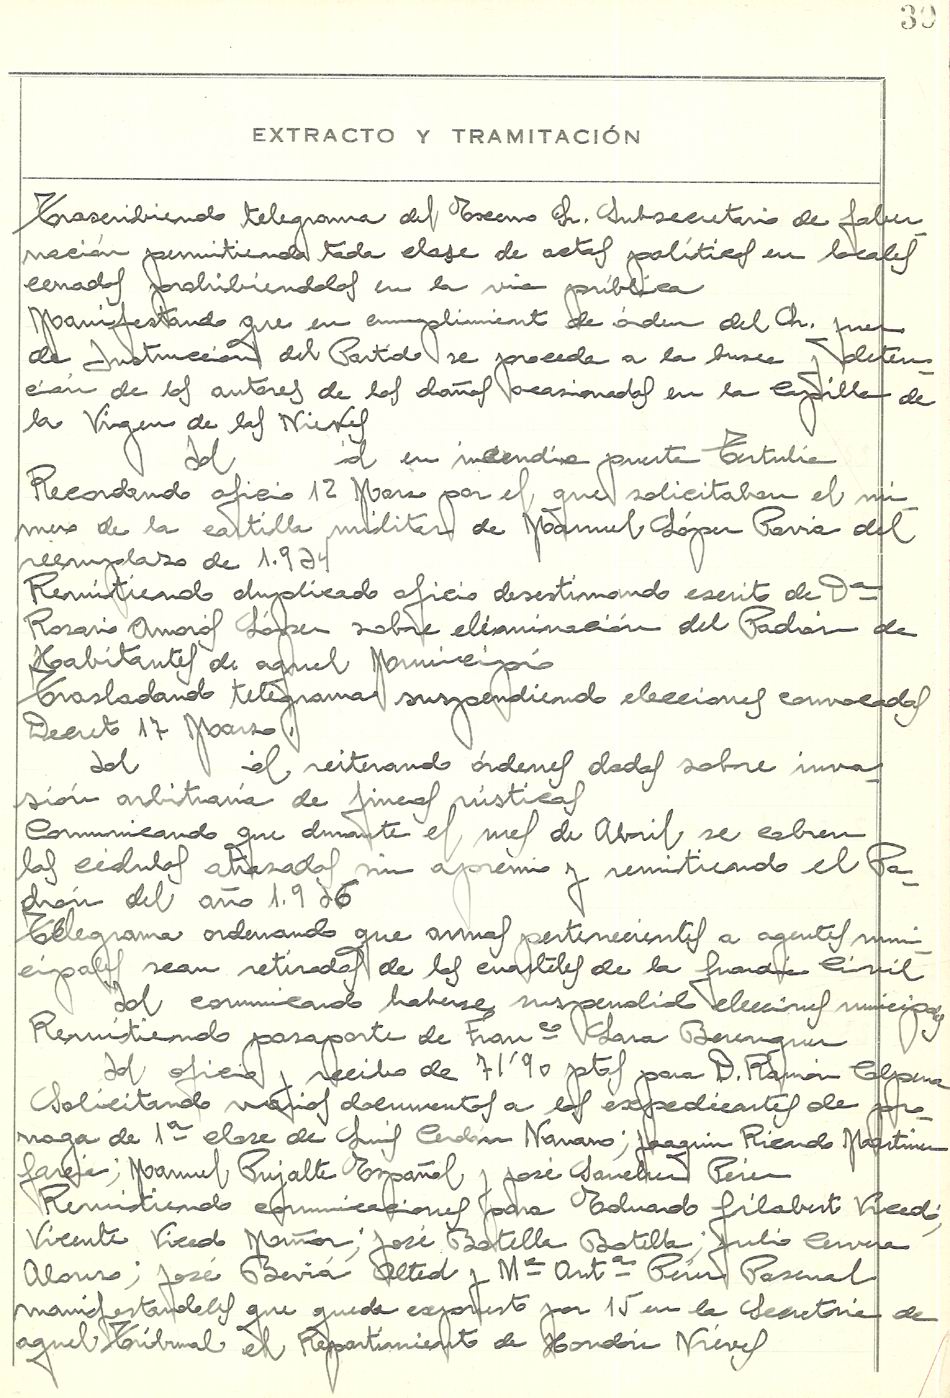 30
EXTRACTO Y TRAMITACIÓN
Trascribiendo telegrama del Excmo Sr. Subsecretario de Gober-
nación permitiendo toda clase de actos políticos en locales
cerrados prohibiendolos en la via pública
Manifestando que en cumplimiento de órden del Sr. Juez
de Instrucción del Partido se proceda a la busca y deten-
ción de los autores de los daños ocasionados en la Capilla de
la Virgen de las Nieves
Id id en incendio puerta Tertulia
Recordando oficio 12 Marzo por el que solicitaban el nú-
mero de la cartilla militar de Manuel López Pavia del
reemplazo de 1.934
Remitiendo duplicado oficio desestimando escrito de Dª
Rosario Amorós López sobre eliminación del Padrón de
Habitantes de aquel Municipio
Trasladando telegrama suspendiendo elecciones convocadas
Decreto 17 Marzo
Id id reiterando órdenes dadas sobre inva-
sión arbitraria de fincas rústicas
Comunicando que durante el mes de Abril se cobren
las cédulas atrasadas sin apremio y remitiendo el Pa-
drón del año 1.936
Telegrama ordenando que armas pertenecientes a agentes muni-
cipales sean retiradas de los cuarteles de la Guardia Civil
Id comunicando haberse suspendido elecciones municipales
Remitiendo pasaporte de Francº Lara Berenguer
Id oficio y recibo de 71'90 ptas para D. Ramón Calpena
Solicitando varios documentos a los expedientes de pro-
rroga de 1ª clase de Luis Cerdán Navarro; Joaquin Ricardo Martinez
Garcia; Manuel Pujalte Español y José Sanchez Pérez
Remitiendo comunicaciones para Eduardo Gilabert Vicedo;
Vicente Vicedo Mañor; José Botella Botella; Julio Cervera
Alonso; José Beviá Alted y Mª Antª Pérez Pascual
manifestandoles que queda expuesto por 15 en la Secretaria de
aquel Tribunal el Repartimiento de Hondón Nieves